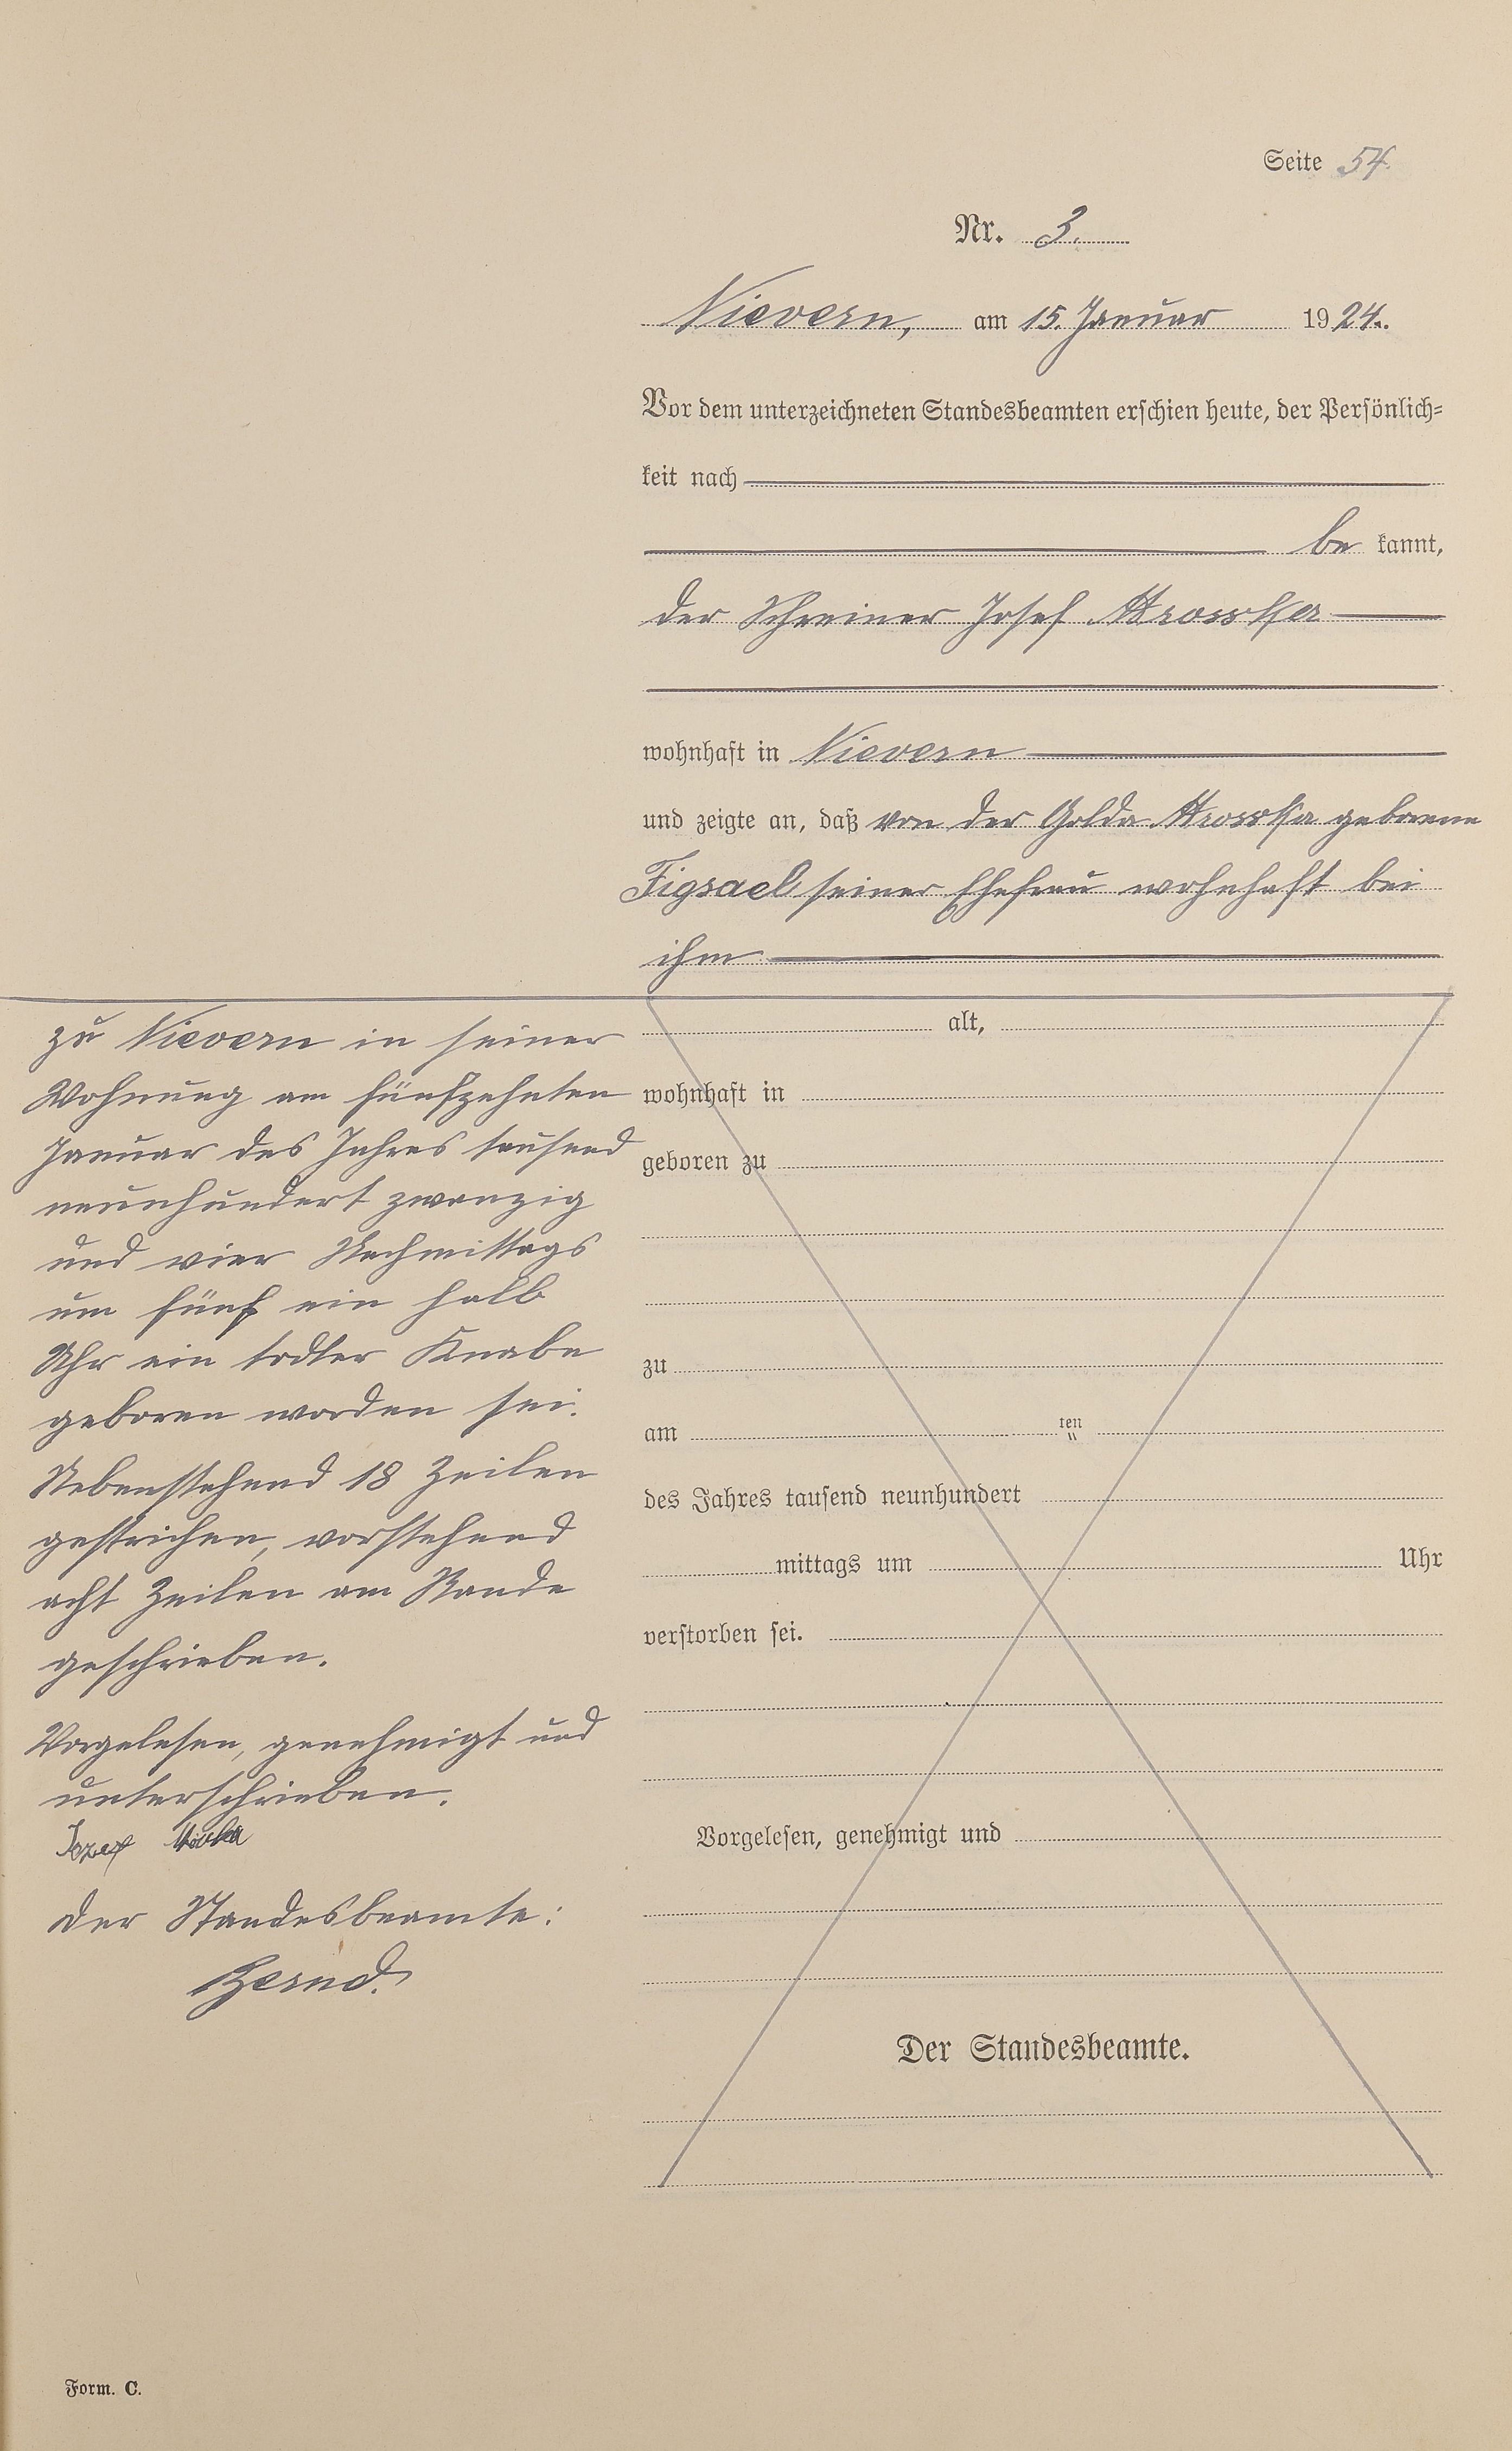 Seite 54.
Nr. 3.
Nievern, am 15. Januar 1924.
Vor dem unterzeichneten Standesbeamten erschien heute, der Persönlich-
keit nach
be kannt,
der Schreiner Josef
wohnhaft in Nievern
und zeigte an, daß von der Golda geborene
Figsael seiner Ehefrau wohnhaft bei
ihm
zu Nievern in seiner
Wohnung am fünfzehnten
Januar des Jahres tausend
neunhundert zwanzig
und vier Nachmittags
um fünf ein halb
Uhr ein todter Knabe
geboren worden sei.
Nebenstehend 18 Zeilen
gestrichen, vorstehend
acht Zeilen am Rande
geschrieben.
Vorgelesen, genehmigt und
unterschrieben.
Jozef
Der Standesbeamte:
alt,
wohnhaft in
geboren zu
zu
am ten
des Jahres tausend neunhundert
mittags um Uhr
verstorben sei.
Vorgelesen, genehmigt und
Der Standesbeamte.
Form. C.